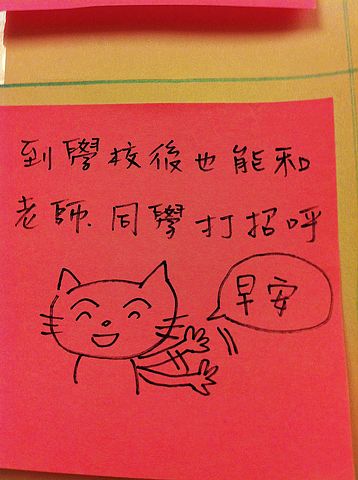 到學校後也能和
老師、同學打招呼
早安